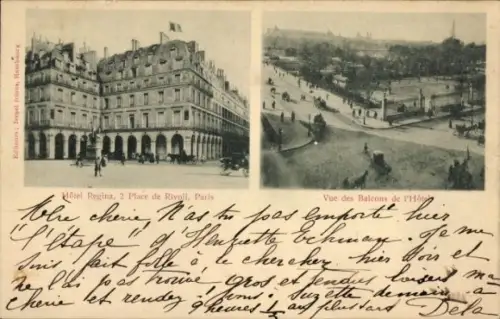 Editeurs: Jospel frères, Strasbourg
Hôtel Regina, 2 Place de Rivoli, Paris
Vue des Balcons de l'Hôtel
Mre cherie, N'as tu pas emporté hier
"L'étape" d'Henriette Eckman. Je me
suis fait folle à le chercher hier soir et
ne l'ai pas trouvé, gros et tendres baisers ma
cherie et rendez-vous: Suzette demain à
9 heures ½ au plus tard